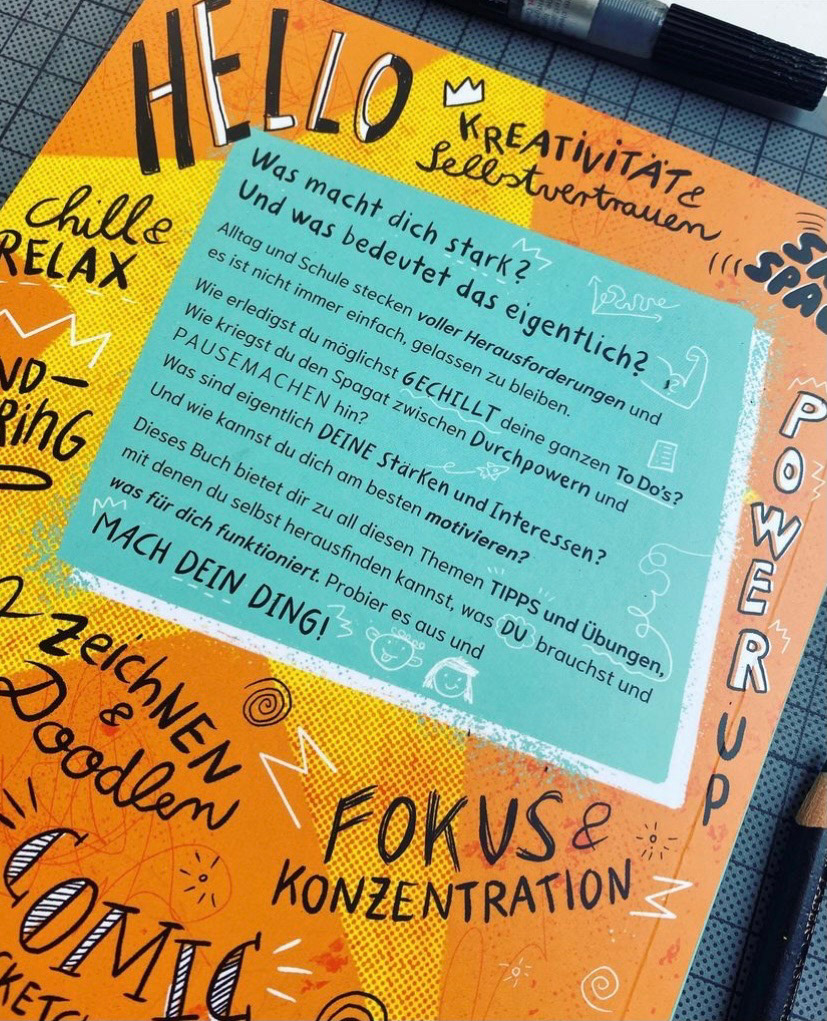 HELLO
KREATIVITÄT &
Selbstvertrauen
chill &
RELAX
Was macht dich stark?
Und was bedeutet das eigentlich?
Alltag und Schule stecken voller Herausforderungen und
es ist nicht immer einfach, gelassen zu bleiben.
Wie erledigst du möglichst GECHILLT deine ganzen To Do's?
Wie kriegst du den Spagat zwischen Durchpowern und
PAUSEMACHEN hin?
Was sind eigentlich DEINE Stärken und Interessen?
Und wie kannst du dich am besten motivieren?
Dieses Buch bietet dir zu all diesen Themen TIPPS und Übungen,
mit denen du selbst herausfinden kannst, was DU brauchst und
was für dich funktioniert. Probier es aus und
MACH DEIN DING!
POWER UP
ZeichNEN
&
Doodlen
FOKUS &
KONZENTRATION
COMIC